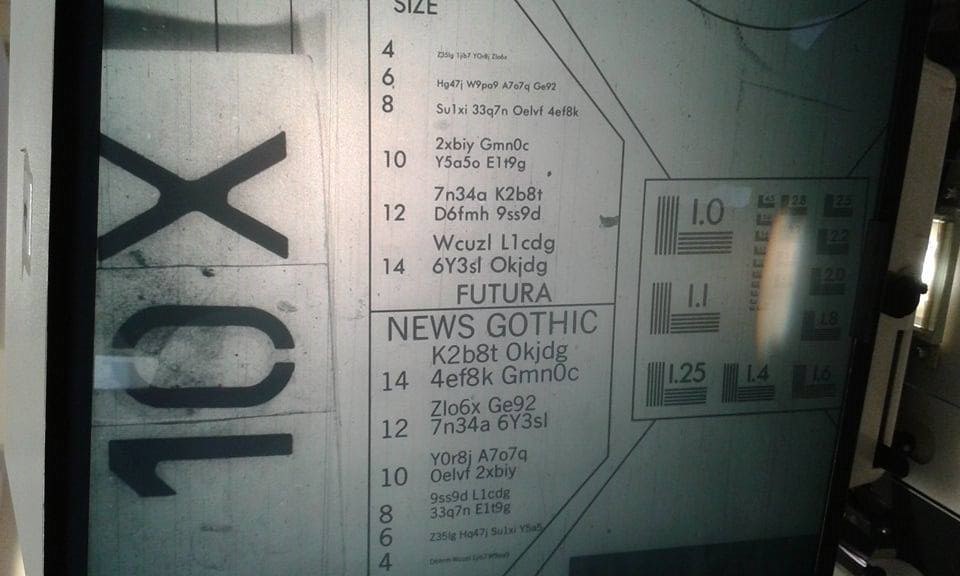 10X
SIZE
4 Z35lg 1jb7 Y0r8j Zlo6x
6 Hg47j W9pa9 A7o7q Ge92
8 Su1xi 33q7n Oelvf 4ef8k
2xbiy Gmn0c
10 Y5a5o E1t9g
7n34a K2b8t
12 D6fmh 9ss9d
Wcuzl L1cdg
14 6Y3sl Okjdg
FUTURA
NEWS GOTHIC
K2b8t Okjdg
14 4ef8k Gmn0c
Zlo6x Ge92
12 7n34a 6Y3sl
Y0r8j A7o7q
10 Oelvf 2xbiy
9ss9d L1cdg
8 33q7n E1t9g
6 Z35lg Hq47j Su1xi Y5a5
4
1.0
4.5 2.8 2.5
2.2
2.0
1.1
1.8
1.25 1.4 1.6